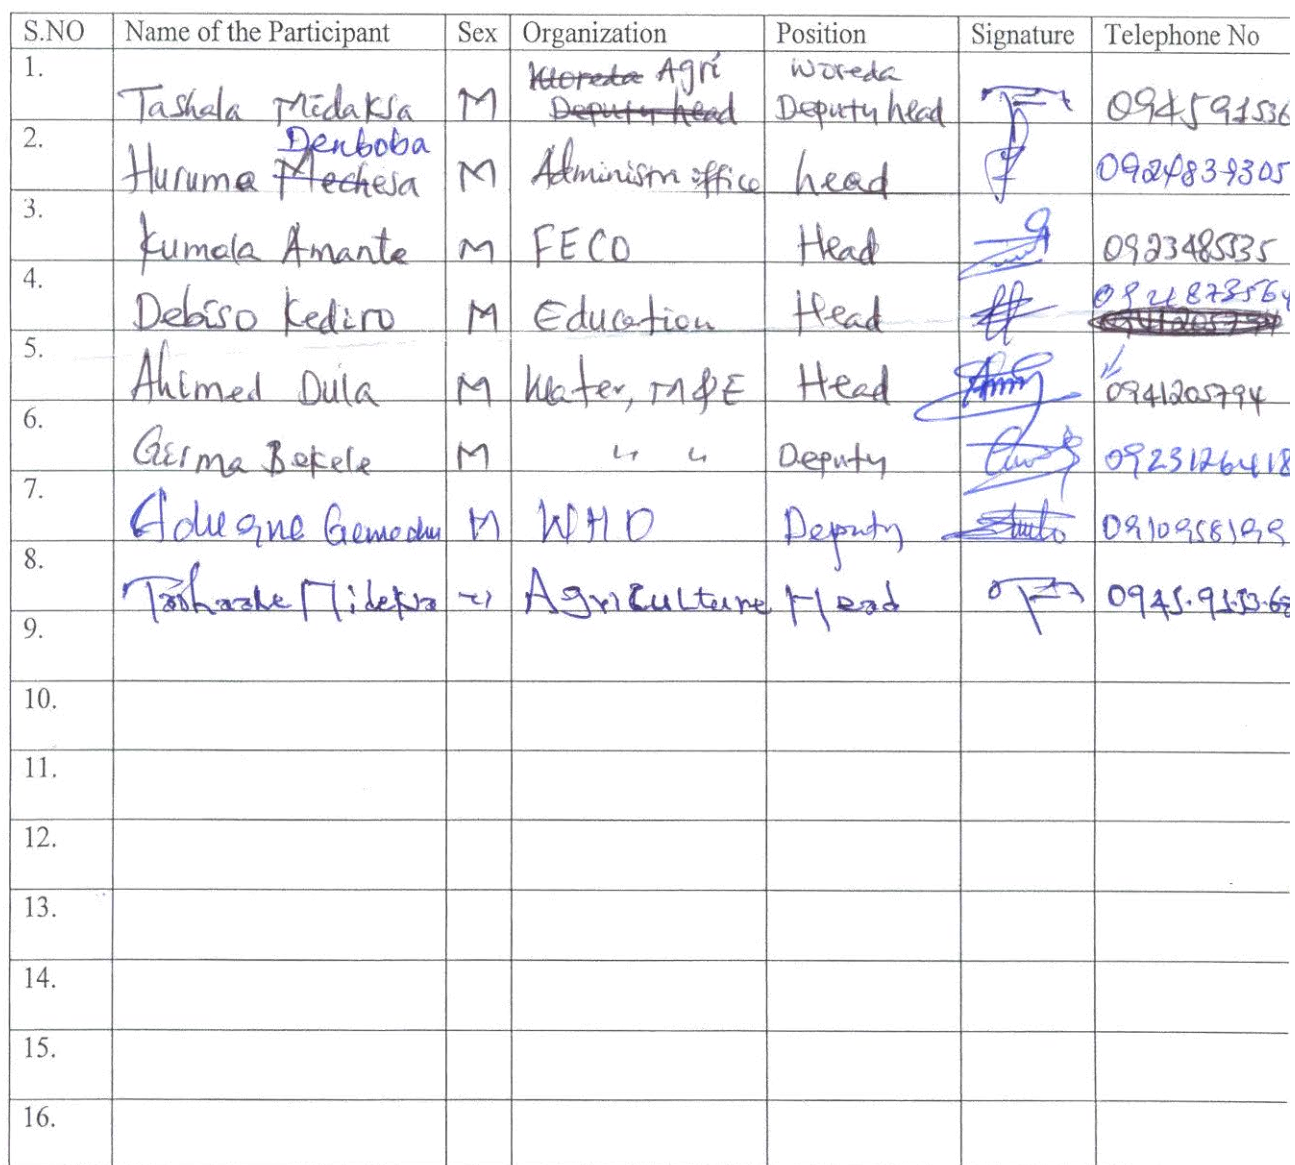 S.NO Name of the Participant Sex Organization Position Signature Telephone No
1. Tashala Midaksa M Woreda Agri Deputy head Woreda Deputy head 094591536
2. Huruma Mechesa Denboba M Administn office head 0924839305
3. Kumala Amante M FECO Head 0923485535
4. Debiso Kediro M Education Head 0921873564
5. Ahimed Dula M Water, M&E Head 0941205794
6. Girma Bekele M " " Deputy 0923126418
7. Gemechu M WHO Deputy 0910958199
8. Agriculture Head 0945.91.53.68
9.
10.
11.
12.
13.
14.
15.
16.